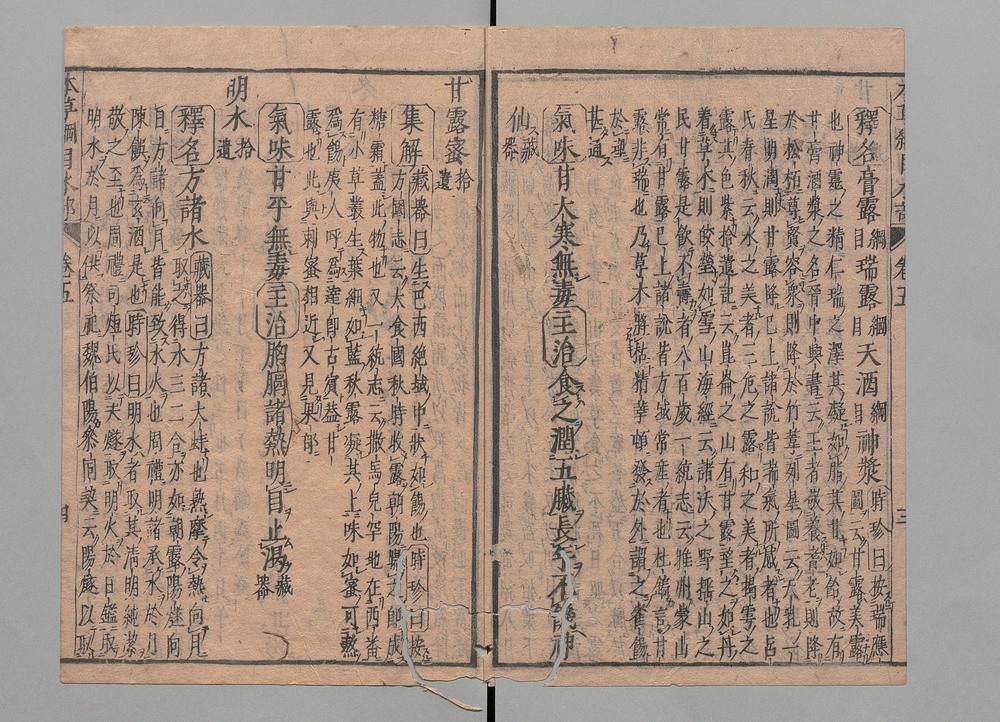 釋名膏露綱目瑞露綱目天酒綱目神漿時珍曰按瑞應圖云甘露美露
也神靈之精仁瑞之澤其凝如脂其甘如飴故有
甘膏酒漿之名晉中興書云王者敬養耆老則降
於松柏尊賢容衆則降於竹葦列星圖云天乳一
星明潤則甘露降已上諸說皆瑞氣所感者也呂
氏春秋云水之美者三危之露和之美者揭雩之
露其色紫拾遺記云崑崙之山有甘露望之如丹
着草木則皎瑩如雪山海經云諸沃之野搖山之
民甘露是飲不壽者八百歲一統志云雅州蒙山
常有甘露已上諸說皆方域常產者也杜鎬言甘
露非瑞也乃草木將枯精華頓發於外謂之雀餳
於理
甚通
氣味甘大寒無毒主治食之潤五臟長年不飢神
仙藏器
甘露蜜拾遺
集解藏器曰生巴西絶域中狀如餳也時珍曰按
方國志云大食國秋時收露朝陽曝之即成
糖霜蓋此物也又一統志云撒馬兒罕地在西番
有小草叢生葉細如藍秋露凝其上味如蜜可熬
爲餳夷人呼爲達即古賓蓋甘
露也此與刺蜜相近又見果部
氣味甘平無毒主治胸膈諸熱明目止渴藏器
明水拾遺
釋名方諸水藏器曰方諸大蚌也熟摩令熱向月
取之得水三二合亦如朝露陽燧向
日方諸向月皆能致水火也周禮明諸承水於月
陳饌爲玄酒是也時珍曰明水者取其清明純潔
敬之至也周禮司烜氏以夫燧取明火於日鑑取
明水於月以供祭祀魏伯陽參同契云陽燧以取